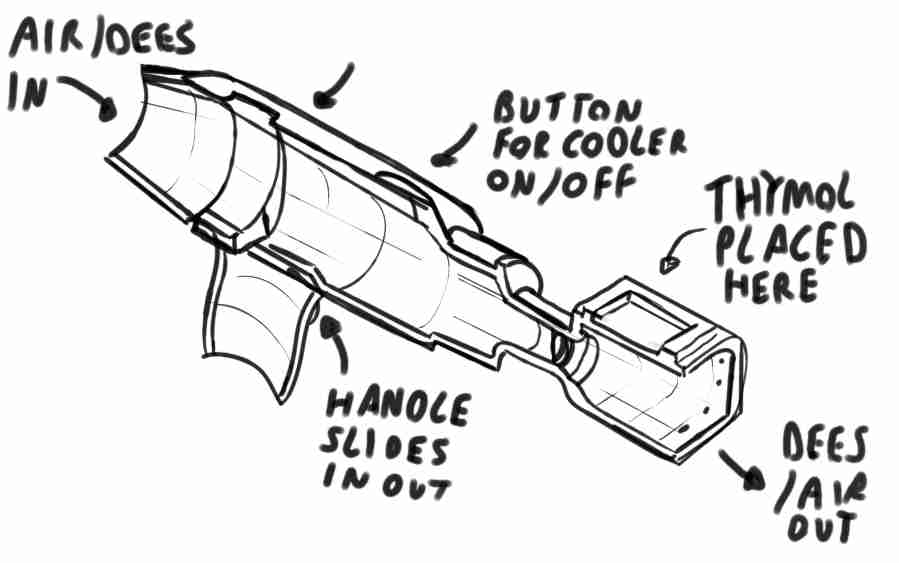 AIR/DEES
IN
BUTTON
FOR COOLER
ON/OFF
THYMOL
PLACED
HERE
HANDLE
SLIDES
IN OUT
DEES
/AIR
OUT